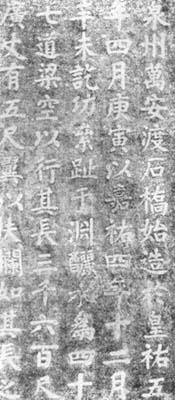 泉州萬安渡石橋始造於皇祐五
年四月庚寅以嘉祐四年十二月
辛未訖功絫趾于淵釃水爲四十
七道梁空以行其長三千六百尺
廣丈有五尺翼以扶欄如其長之